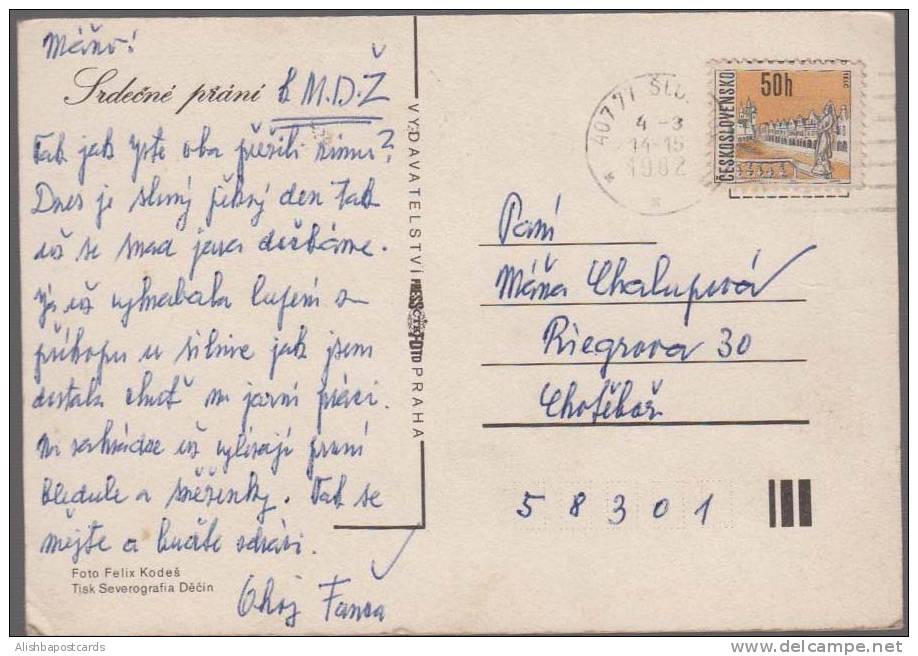 Máňo!
Srdečné přání k M.D.Ž
Tak jak jste oba přežili zimu?
Dnes je slunný pěkný den tak
už se snad jara dočkáme.
Já už vyhrabala lupení z
příkopu u silnice jak jsem
dostala chuť na jarní práci.
Na zahrádce už vylézají první
bledule a sněženky. Tak se
mějte a buďte zdrávi.
Ahoj Fanča
Foto Felix Kodeš
Tisk Severografia Děčín
VYDAVATELSTVÍ PRESSFOTO PRAHA
40777 ŠLU
4 -3
14-15
1982
ČESKOSLOVENSKO
50h
TELČ
Paní
Máňa Chalupová
Riegrova 30
Chotěboř
58301
Alishbapostcards
www.delcampe.net